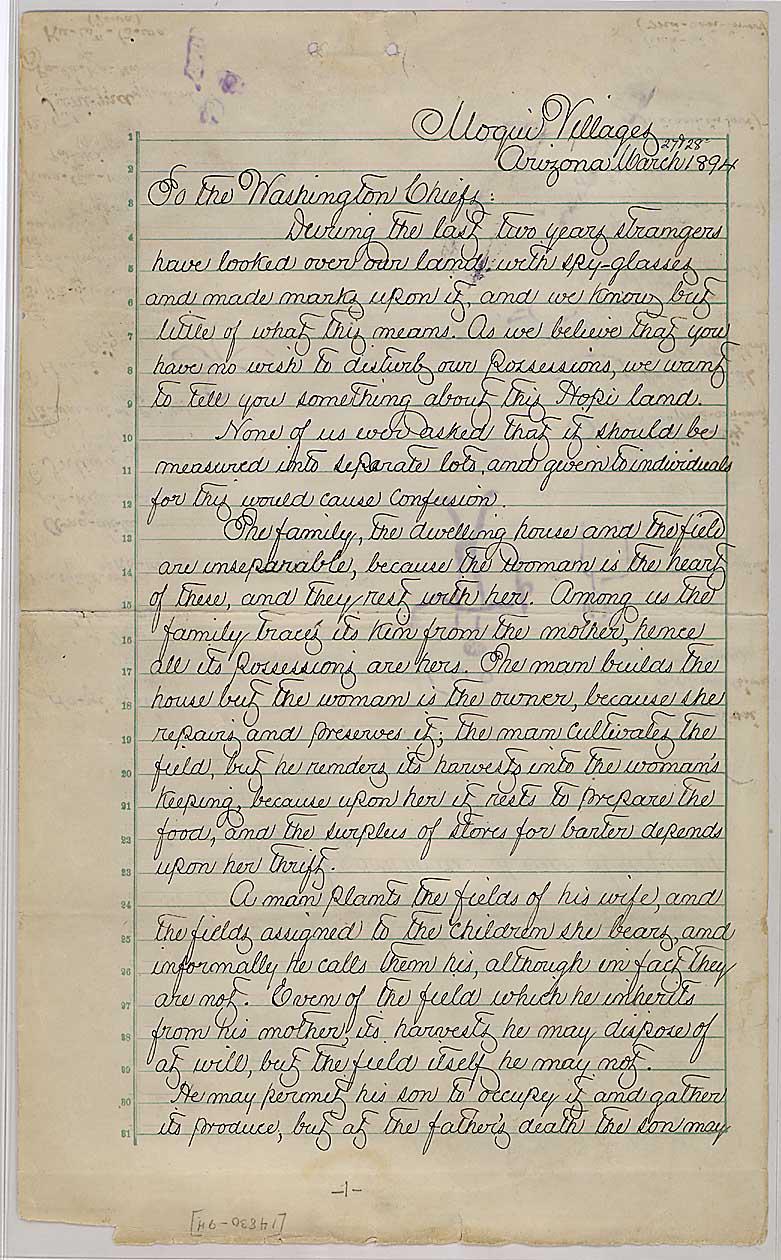 Moqui Villages
27&28
Arizona March 1894
To the Washington Chiefs:
During the last two years strangers
have looked over our land with spy-glasses
and made marks upon it, and we know but
little of what this means. As we believe that you
have no wish to disturb our Possessions, we want
to tell you something about this Hopi land.
None of us ever asked that it should be
measured into separate lots, and given to individuals
for this would cause confusion.
The family, the dwelling house and the field
are inseparable, because the woman is the heart
of these, and they rest with her. Among us the
family traces its kin from the mother, hence
all its possessions are hers. The man builds the
house but the woman is the owner, because she
repairs and preserves it; the man cultivates the
field, but he renders its harvests into the woman's
keeping, because upon her it rests to prepare the
food, and the surplus of stores for barter depends
upon her thrift.
A man plants the fields of his wife, and
the fields assigned to the children she bears, and
informally he calls them his, although in fact they
are not. Even of the field which he inherits
from his mother, its harvests he may dispose of
at will, but the field itself he may not.
He may permit his son to occupy it and gather
its produce, but at the father's death the son may
-1-
[14830-94]